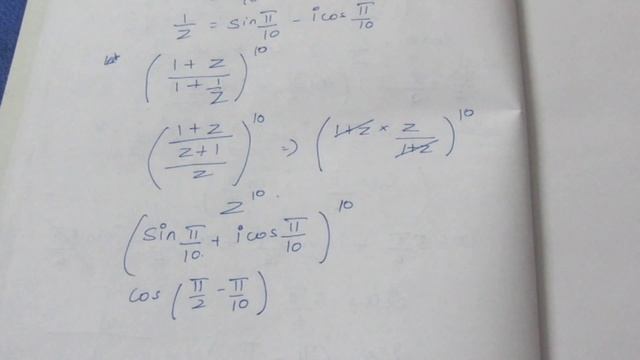 1/z = sin π/10 - i cos π/10
let ((1 + z)/(1 + 1/z))^10
((1 + z)/((z + 1)/z))^10 => (1+z × z/(1+z))^10
z^10
(sin π/10 + i cos π/10)^10
cos (π/2 - π/10)